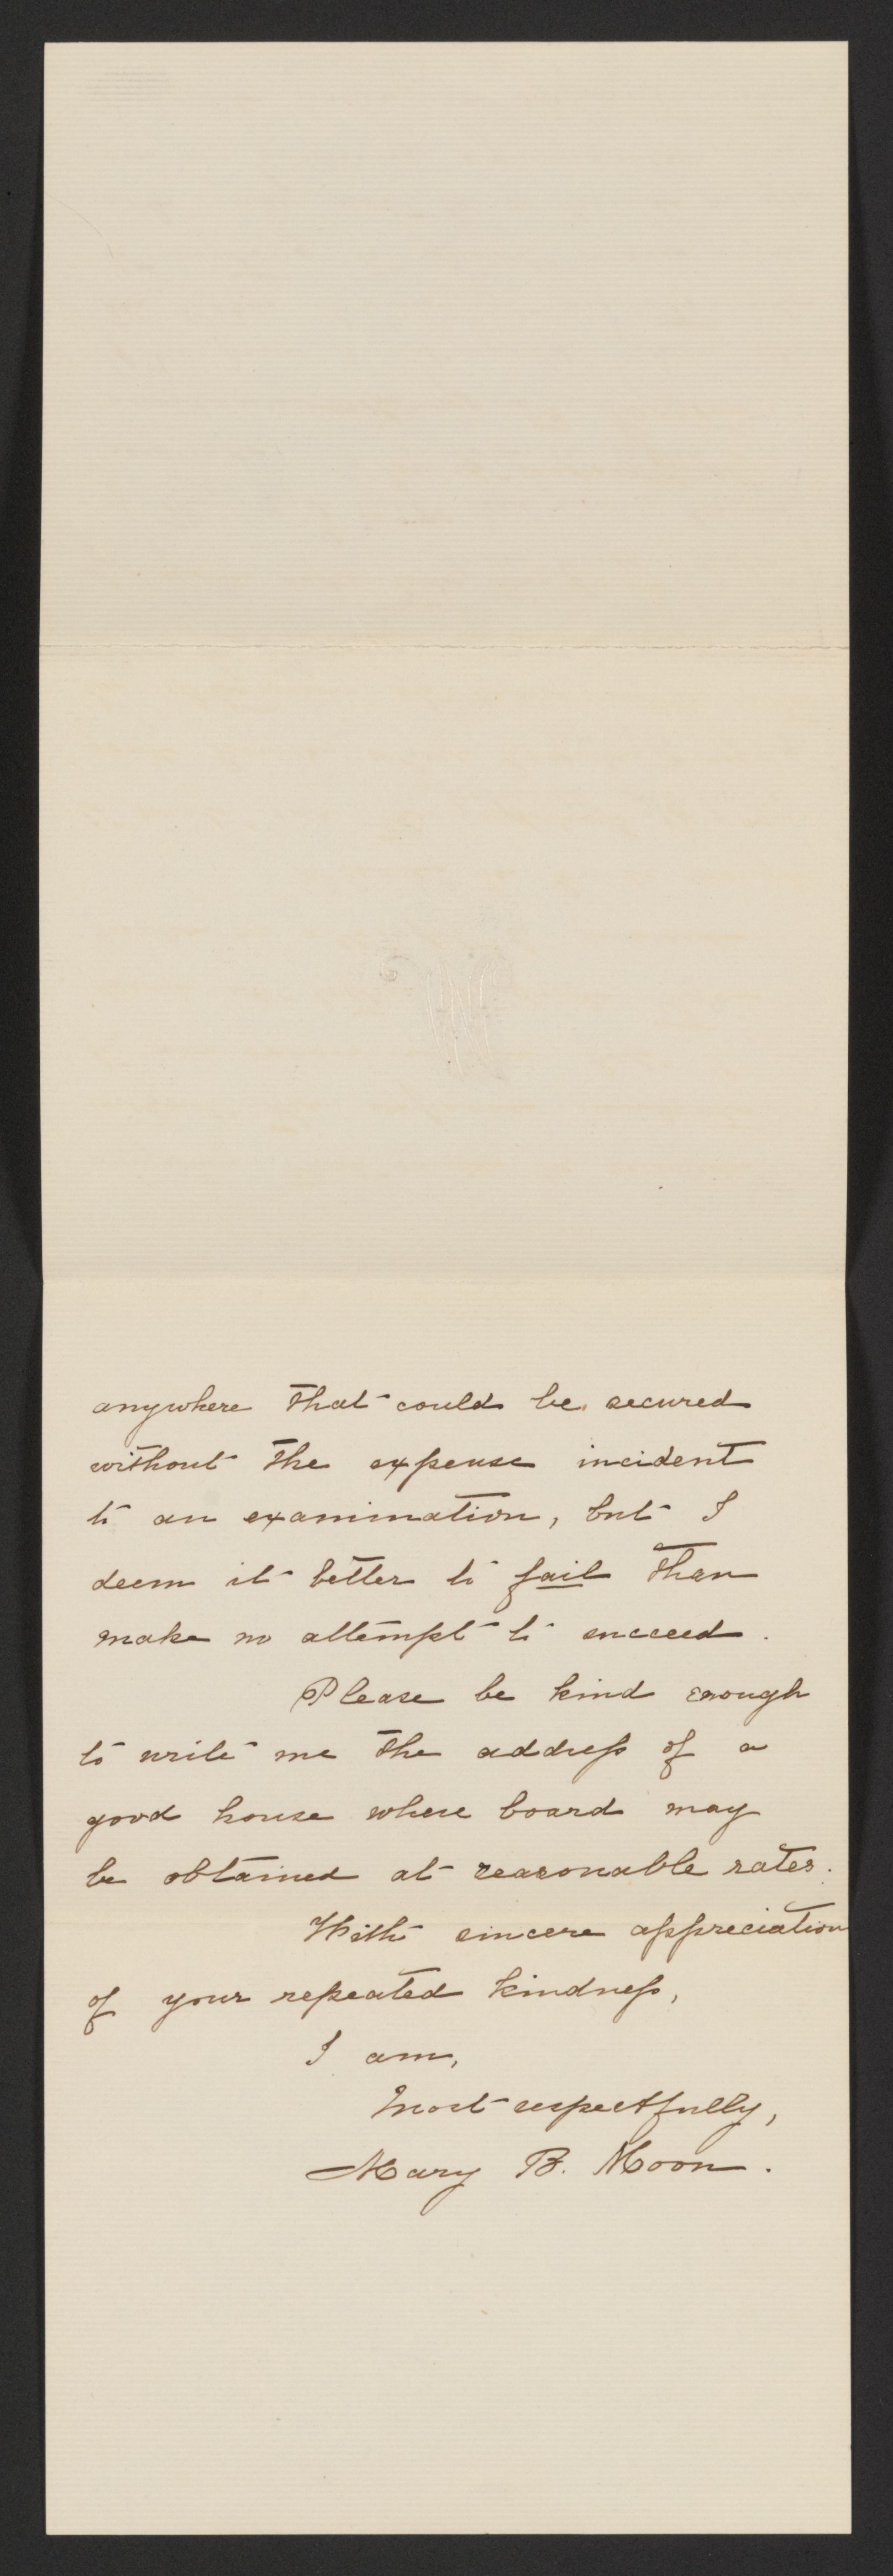 anywhere that could be secured
without the expense incident
to an examination, but I
deem it better to fail than
make no attempt to succeed.
Please be kind enough
to write me the address of a
good house where board may
be obtained at reasonable rates.
With sincere appreciation
of your repeated kindness,
I am,
Most respectfully,
Mary B. Moon.